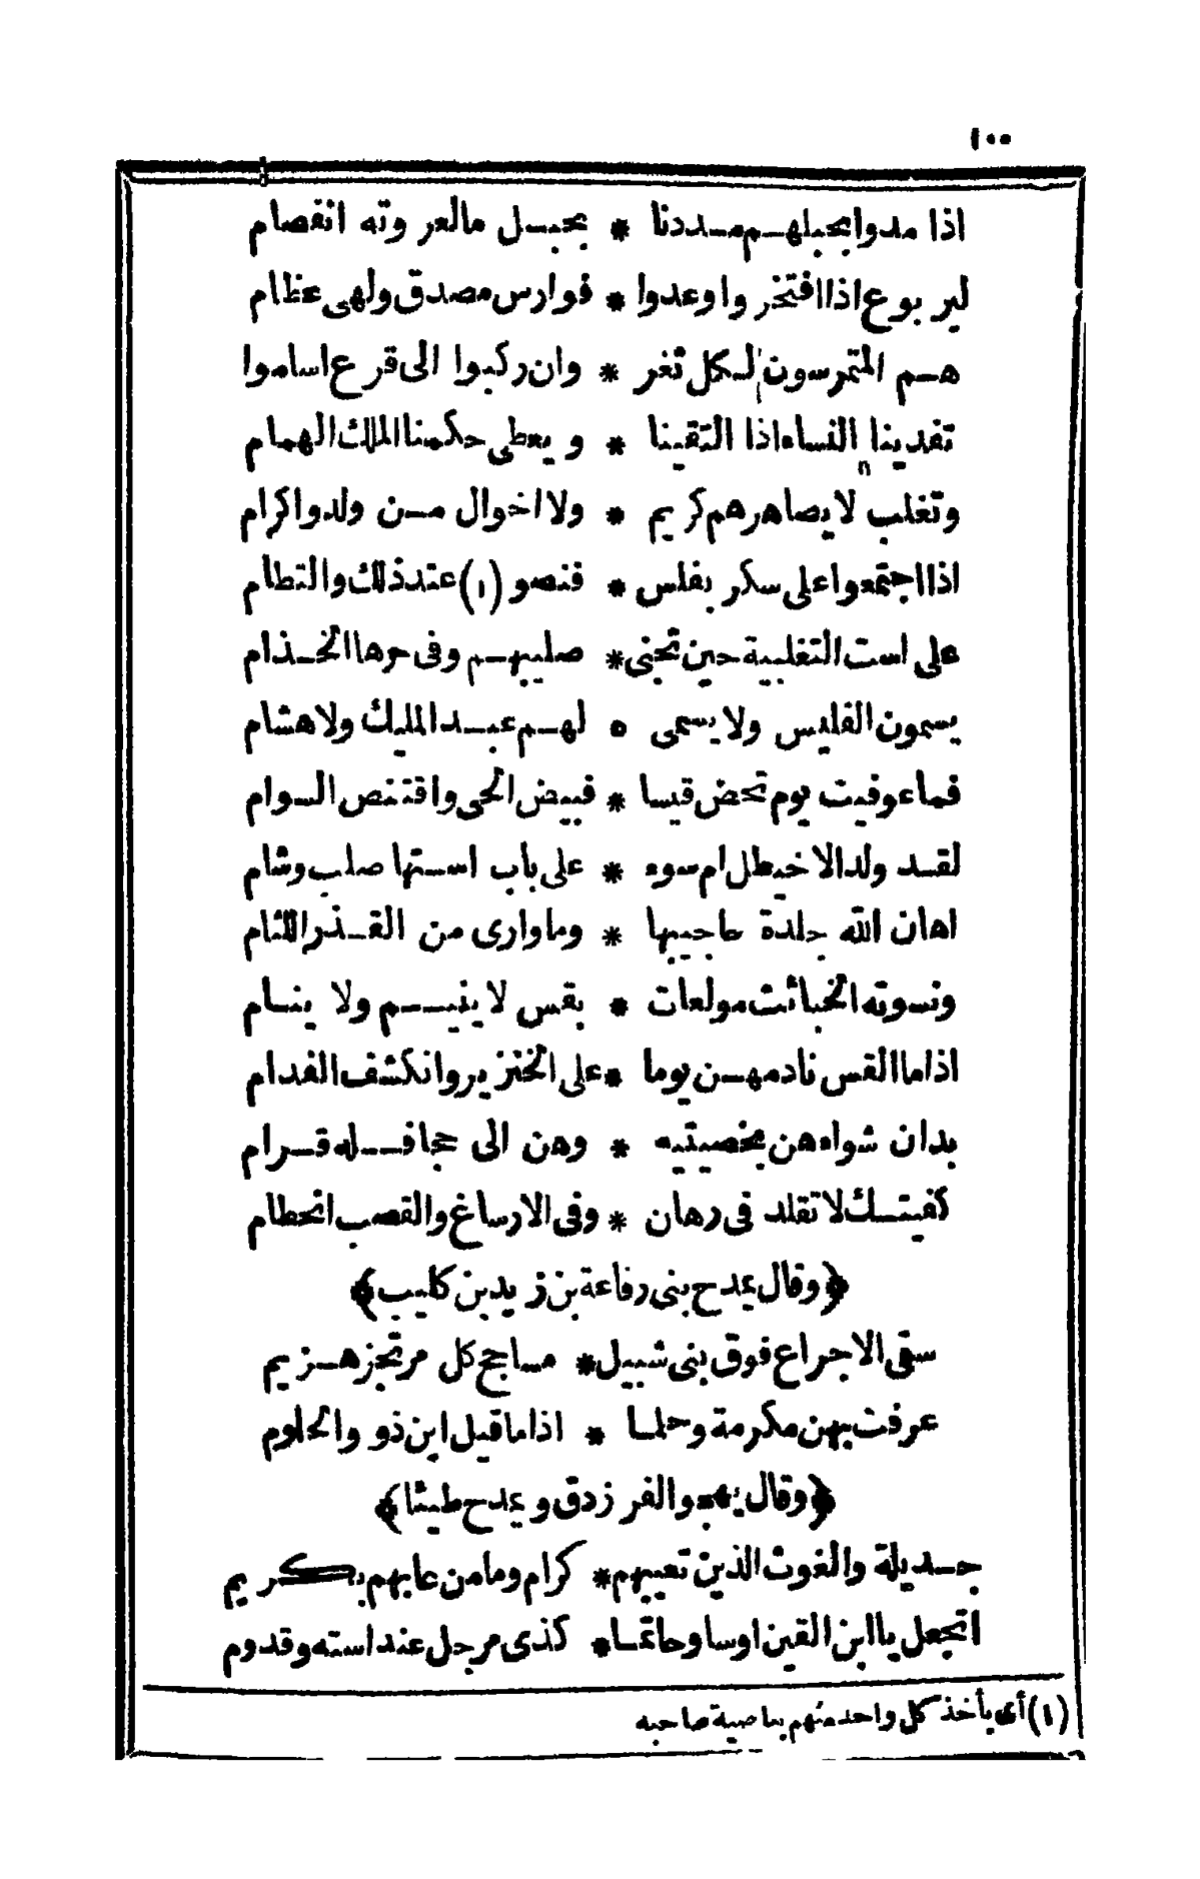 ١٠٠
اذا مدوا بحبلهم مددنا * بحبل مالعروته انفصام
ليربوع اذا افتخروا وعدوا * فوارس مصدق ولهى عظام
هم المتمرسون لكل ثغر * وان ركبوا الى فزع اساموا
تفدينا النساء اذا التقينا * ويعطى حكمنا الملك الهمام
وتغلب لا يصاهرهم كريم * ولا اخوال من ولدوا كرام
اذا اجتمعوا على سكر بفلس * فنصو (١) عند ذلك والتطام
على است التغلبية حين تجنى * صليبهم وفى حرها الخذام
يسمون الفليس ولا يسمى ه لهم عبد المليك ولا هشام
فما عوفيت يوم تحض قيسا * فبيض الحى واقتنص السوام
لقد ولد الاخيطل ام سوء * على باب استها صلب وشام
اهان الله جلدة حاجبيها * وما وارى من القذر اللثام
ونسوته الخبائث مولعات * بقس لا ينيم ولا ينام
اذا ما القس نادمهن يوما * على الخنزير وانكشف الفدام
بدان شواءهن بخصيتيه * وهن الى جحافله قرام
كفيتك لا تقلد فى رهان * وفى الارساغ والقصب انحطام
﴿وقال يمدح بنى رفاعة بن زيد بن كليب﴾
سقى الاجراع فوق بنى شبيل * مساجح كل مرتجز هزيم
عرفت بهن مكرمة وحلما * اذا ما قيل اين ذوو الحلوم
﴿وقال يهجو الفرزدق ويمدح طيئا﴾
جديلة والغوث الذين تعيبهم * كرام وما من عابهم بكريم
اتجعل يا ابن القين اوسا وحاتما * كذى مرجل عند استه وقدوم
(١) أى يأخذ كل واحد منهم بناصية صاحبه